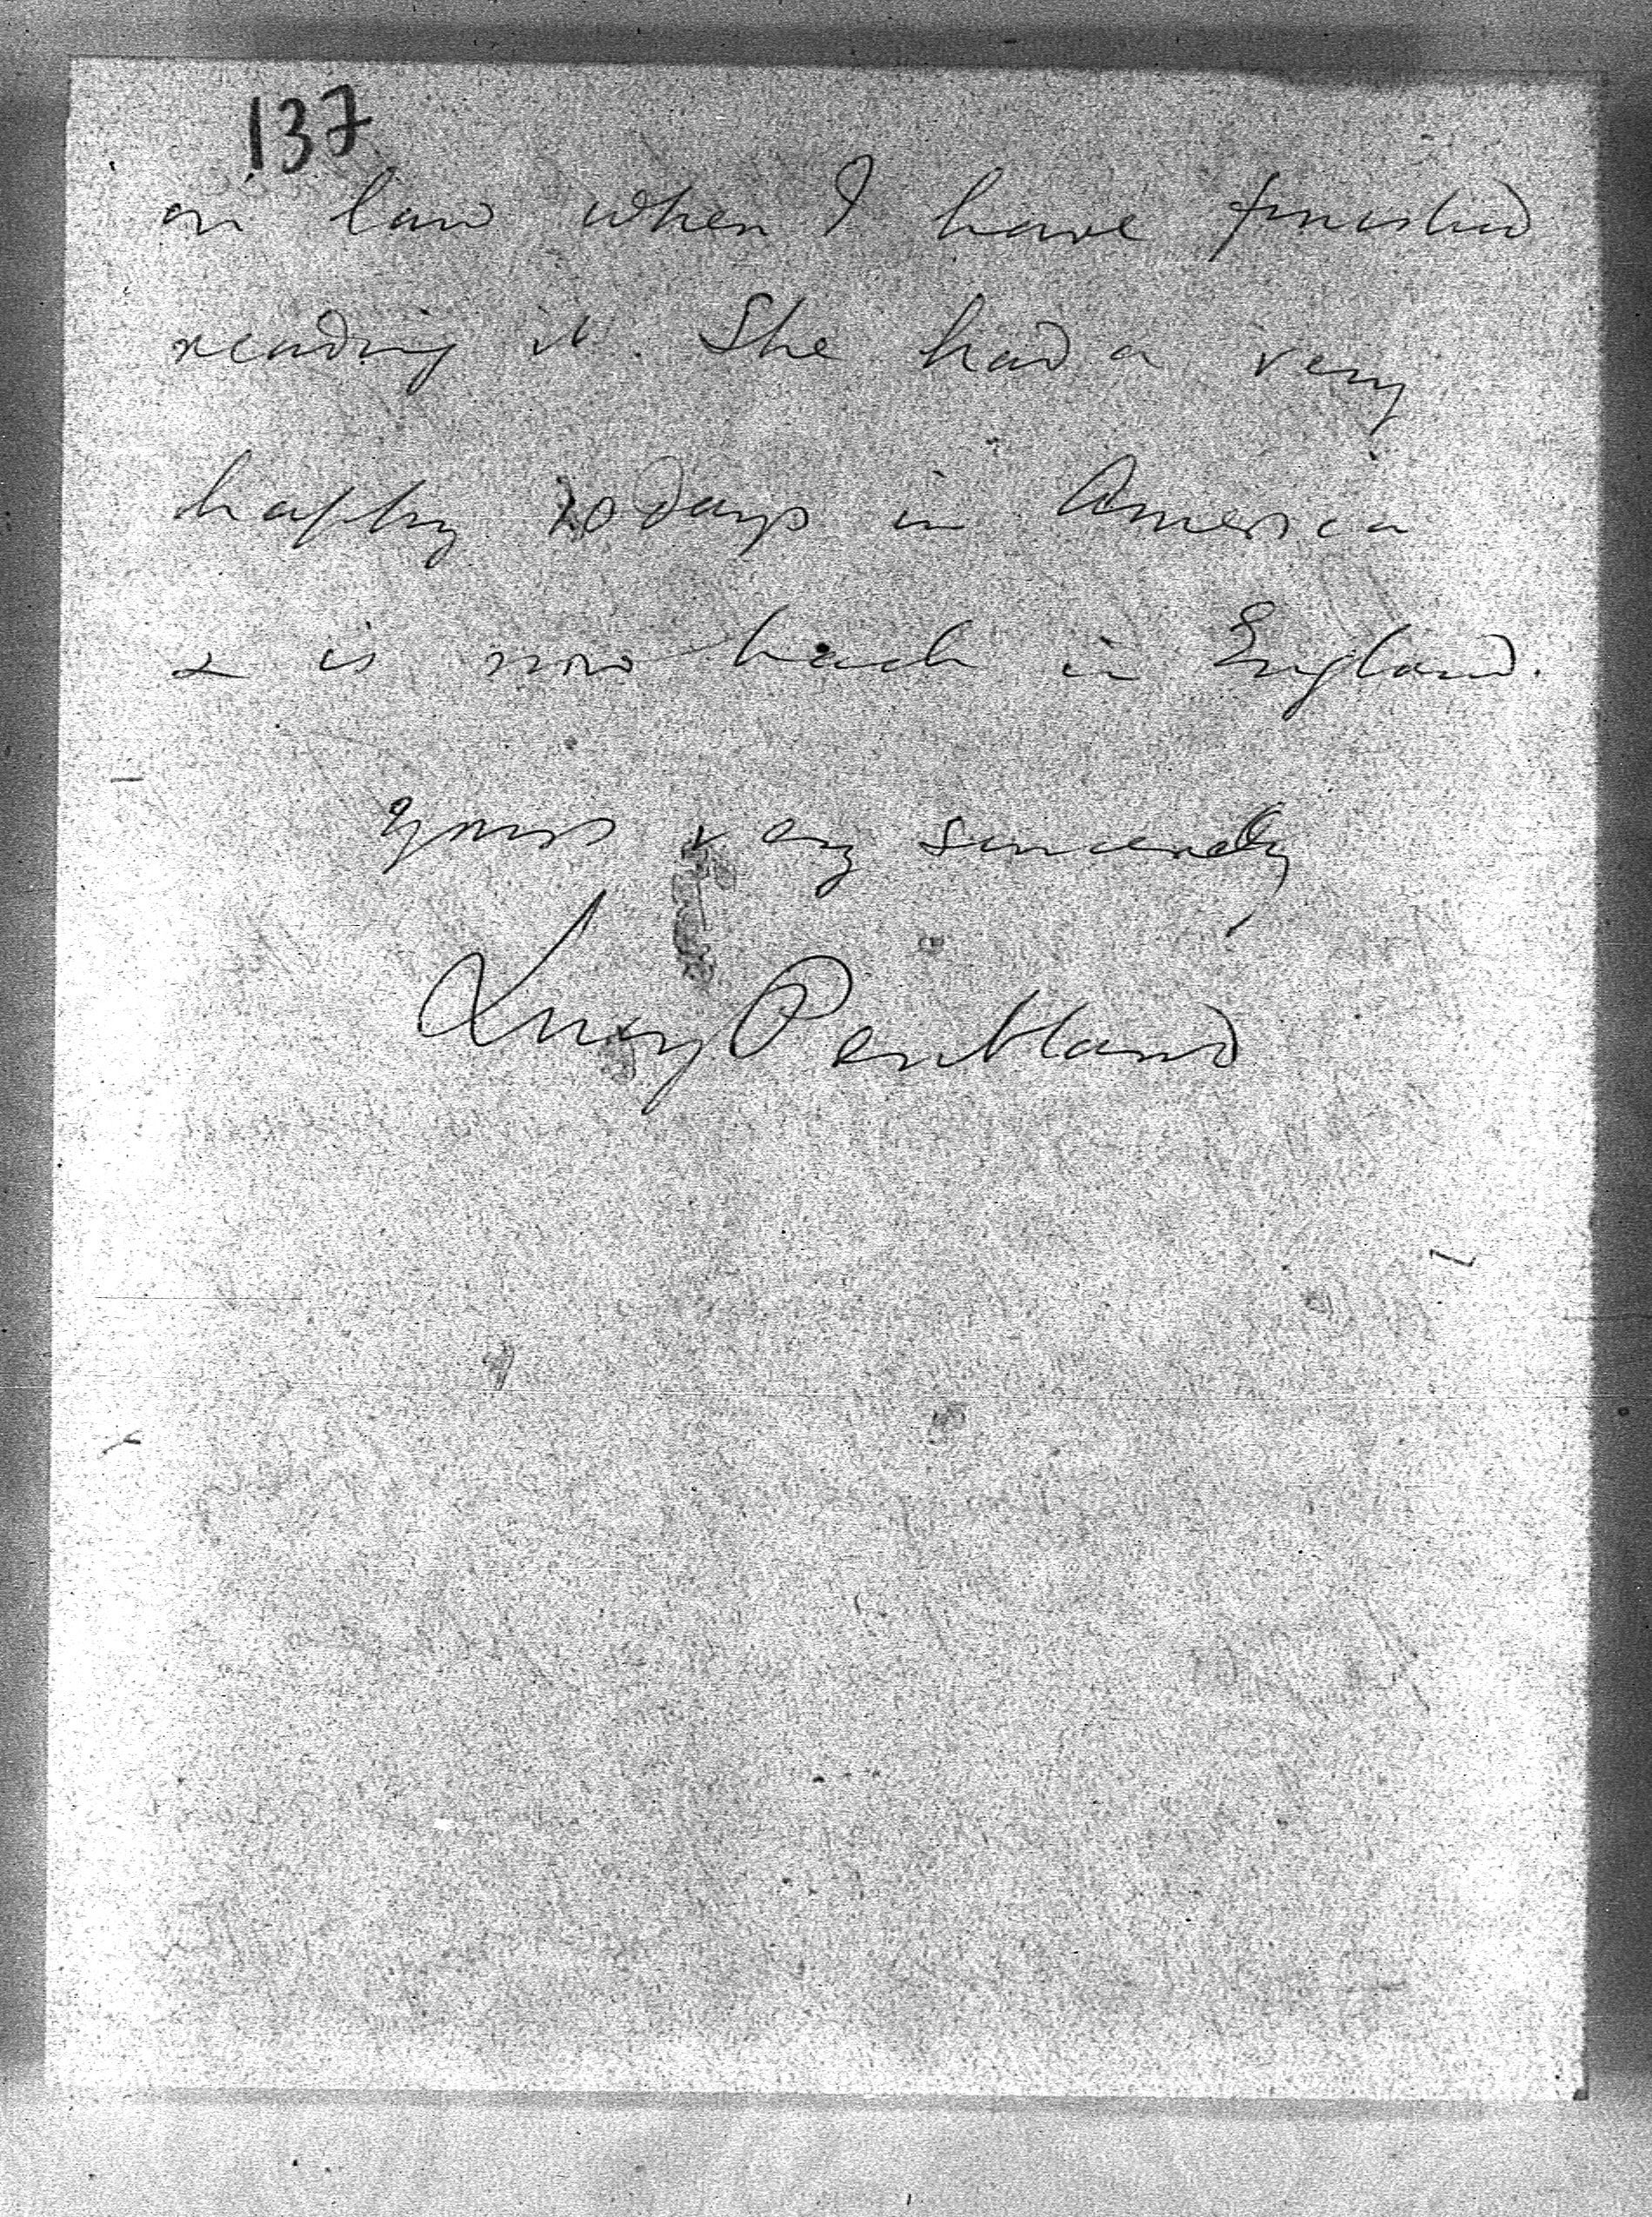 137
in law when I have finished
reading it. She had a very
happy 10 days in America
& is now back in England.
yours very sincerely
Lucy Pentland